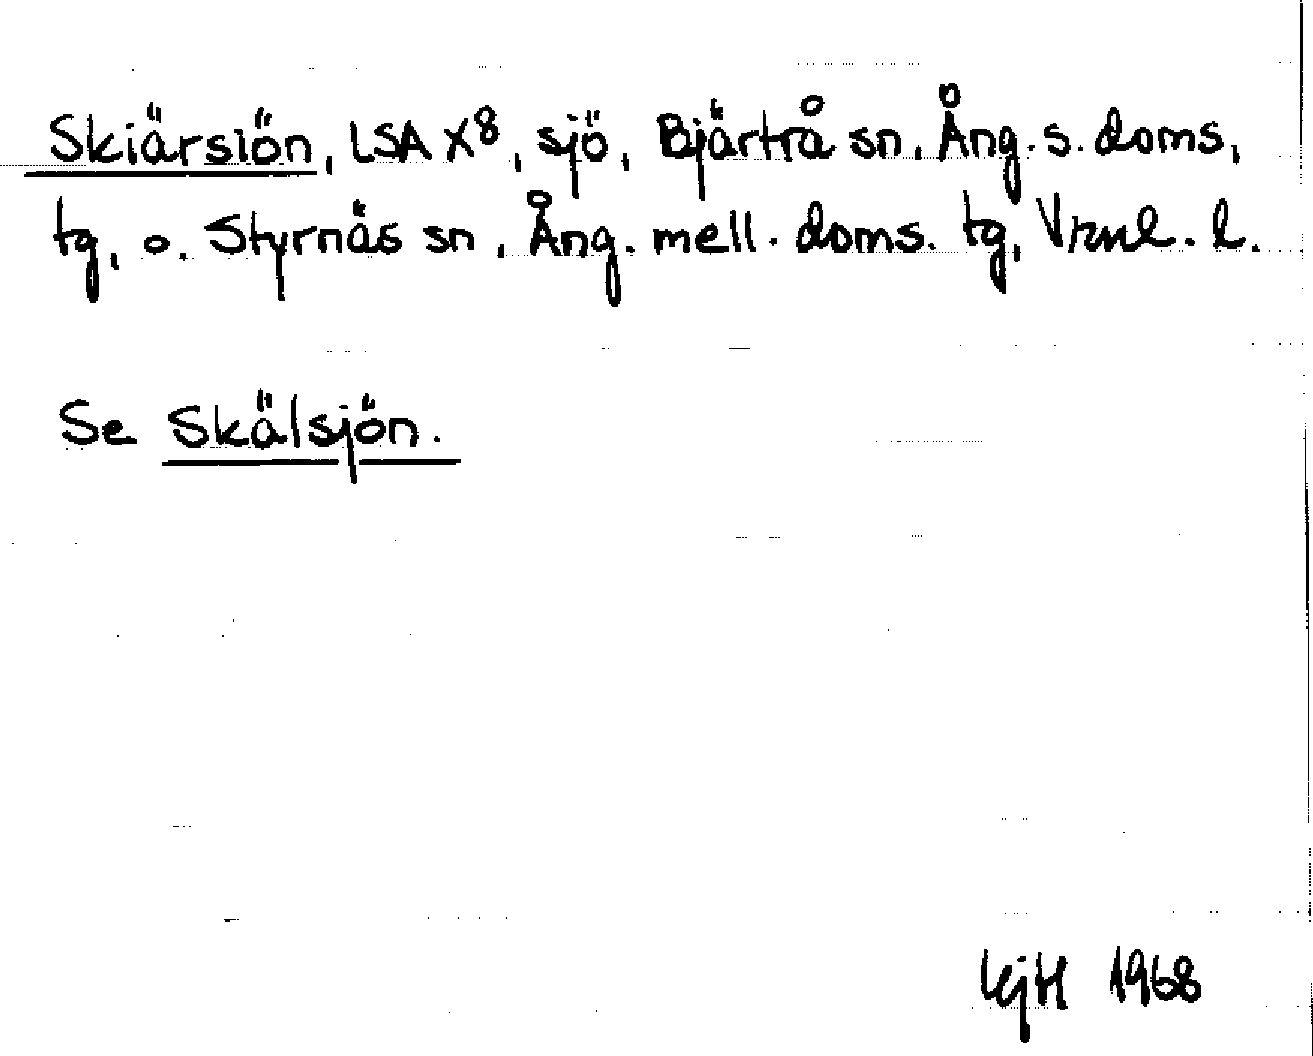 Skiärsiön, LSA X8, sjö, Bjärtrå sn, Ång. s. doms,
tg, o. Styrnäs sn, Ång. mell. doms. tg, Vrnl. l.
Se Skälsjön.
1968